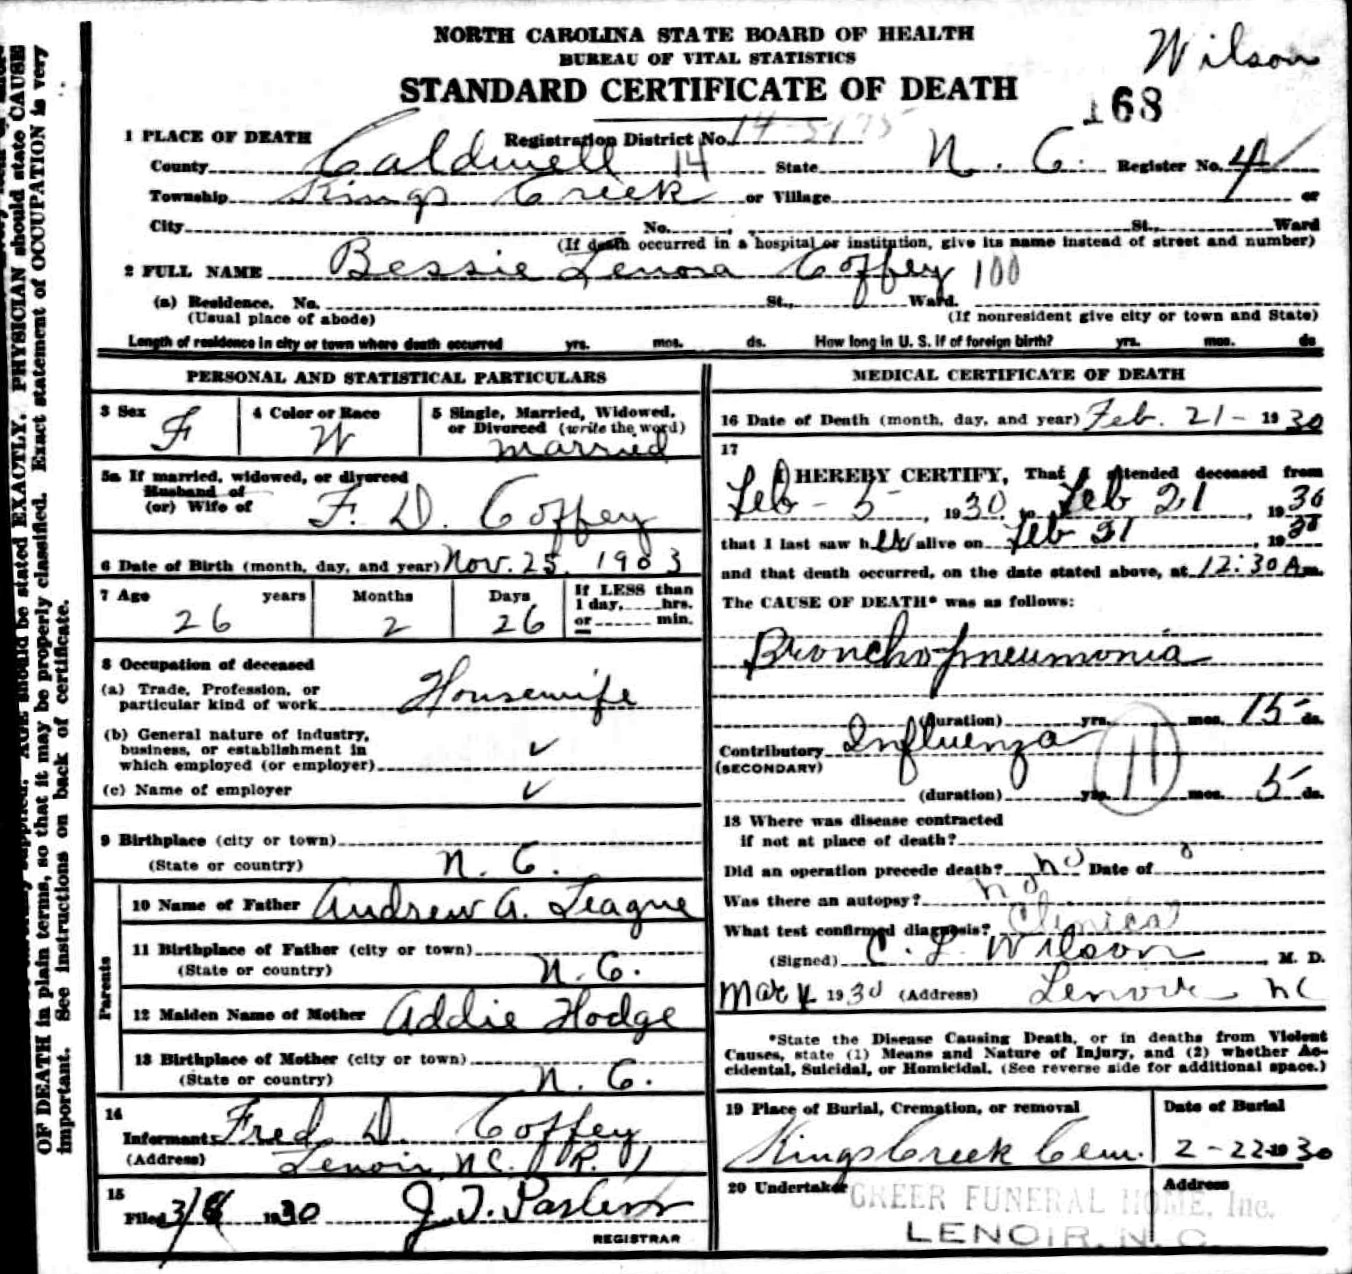 NORTH CAROLINA STATE BOARD OF HEALTH
BUREAU OF VITAL STATISTICS
STANDARD CERTIFICATE OF DEATH
Wilson
168
1 PLACE OF DEATH Registration District No. 14-5175
County Caldwell 14 State N. C. Register No. 4
Township Kings Creek or Village or
City No. , St., Ward
(If death occurred in a hospital or institution, give its name instead of street and number)
2 FULL NAME Bessie Lenora Coffey 100
(a) Residence. No. St., Ward.
(Usual place of abode) (If nonresident give city or town and State)
Length of residence in city or town where death occurred yrs. mos. ds. How long in U. S. if of foreign birth? yrs. mos. ds
PERSONAL AND STATISTICAL PARTICULARS
3 Sex F
4 Color or Race W
5 Single, Married, Widowed, or Divorced (write the word) Married
5a If married, widowed, or divorced
Husband of
(or) Wife of F. D. Coffey
6 Date of Birth (month, day, and year) Nov. 25, 1903
7 Age years Months Days If LESS than
1 day, hrs.
or min.
26 2 26
8 Occupation of deceased
(a) Trade, Profession, or
particular kind of work Housewife
(b) General nature of industry,
business, or establishment in
which employed (or employer) ✓
(c) Name of employer ✓
9 Birthplace (city or town)
(State or country) N. C.
Parents
10 Name of Father Andrew A. Teague
11 Birthplace of Father (city or town)
(State or country) N. C.
12 Maiden Name of Mother Addie Hodge
13 Birthplace of Mother (city or town)
(State or country) N. C.
14
Informant Fred D. Coffey
(Address) Lenoir, N.C. R. 1
15
Filed 3/8 1930 J. T.
REGISTRAR
MEDICAL CERTIFICATE OF DEATH
16 Date of Death (month, day, and year) Feb. 21- 1930
17
I HEREBY CERTIFY, That I attended deceased from
Feb - 5 , 1930 to Feb 21 , 1930
that I last saw her alive on Feb 21 , 1930
and that death occurred, on the date stated above, at 12:30 A m.
The CAUSE OF DEATH* was as follows:
Broncho-pneumonia
(duration) yrs. mos. 15 ds.
Contributory Influenza
(SECONDARY)
11
(duration) yrs. mos. 5 ds.
18 Where was disease contracted
if not at place of death?
Did an operation precede death? no Date of
Was there an autopsy? no
What test confirmed diagnosis? Clinical
(Signed) C. L. Wilson , M. D.
Mar 4 1930 (Address) Lenoir NC
*State the Disease Causing Death, or in deaths from Violent
Causes, state (1) Means and Nature of Injury, and (2) whether Ac-
cidental, Suicidal, or Homicidal. (See reverse side for additional space.)
19 Place of Burial, Cremation, or removal Date of Burial
Kings Creek Cem. 2-22-1930
20 Undertaker Address
GREER FUNERAL HOME, Inc.
LENOIR, N. C.
AGE should be stated EXACTLY. PHYSICIAN should state CAUSE
OF DEATH in plain terms, so that it may be properly classified. Exact statement of OCCUPATION is very
important. See instructions on back of certificate.